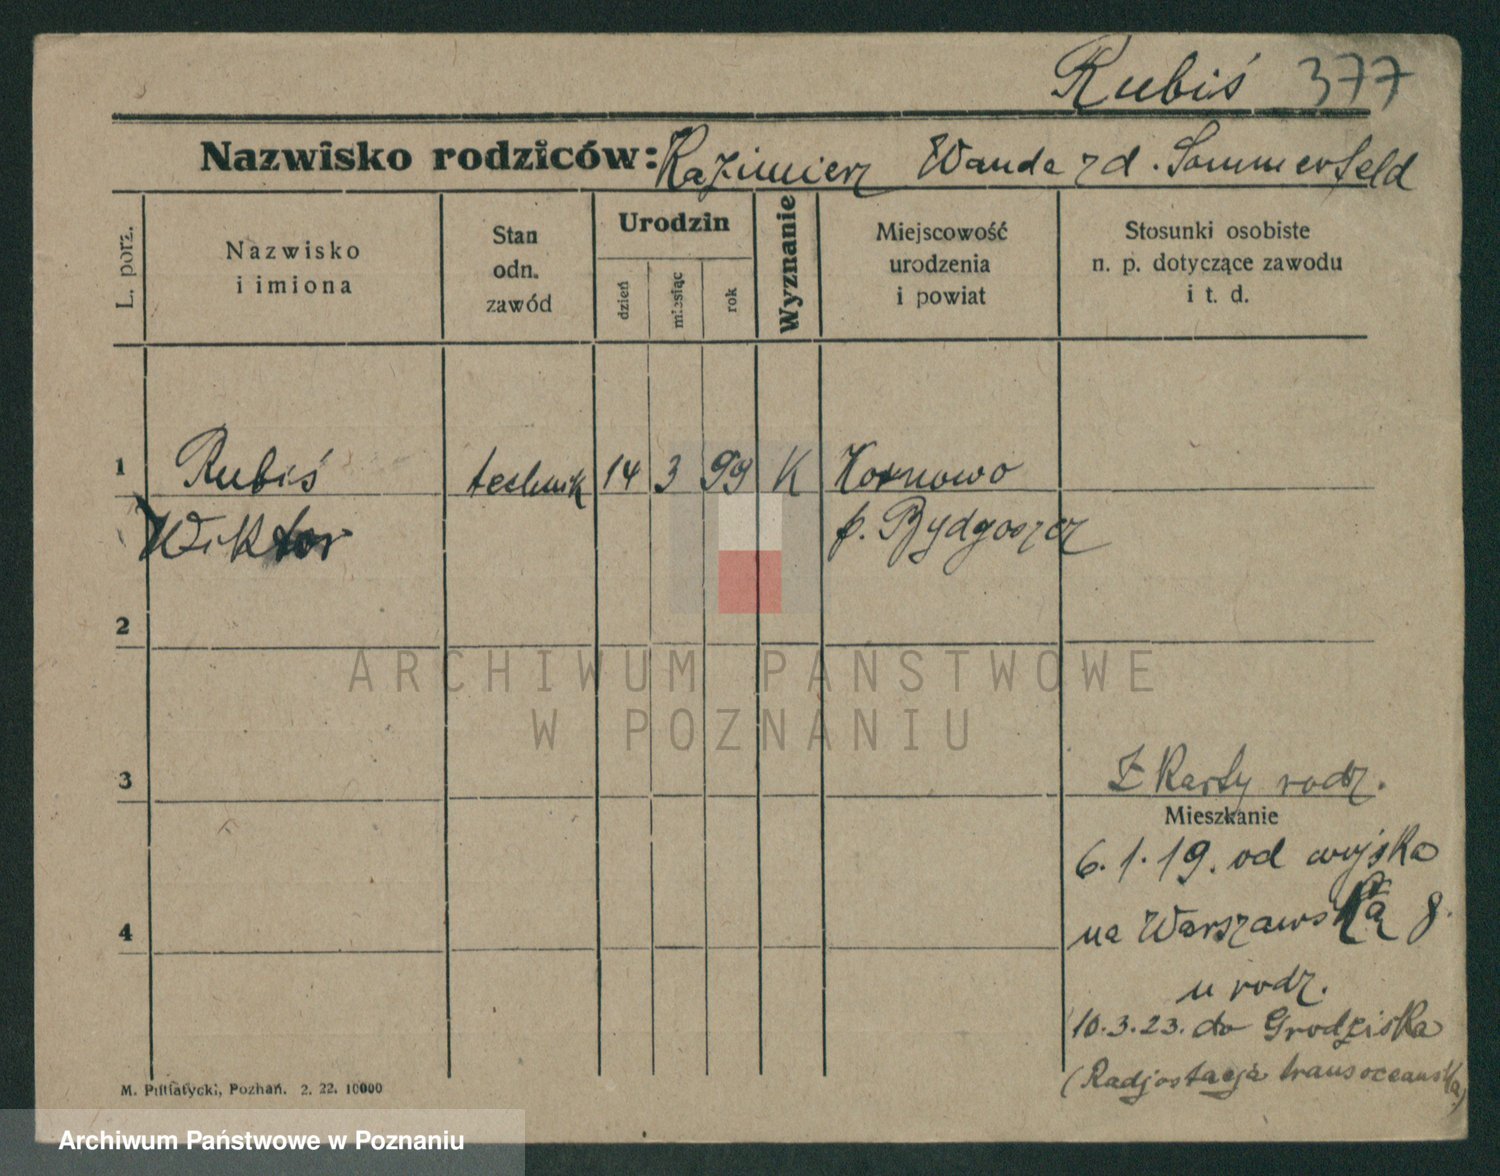 Rubiś 377
Nazwisko rodziców: Kazimierz Wanda zd. Sommerfeld
L. porz.
Nazwisko
i imiona
Stan
odn.
zawód
Urodzin
dzień
miesiąc
rok
Wyznanie
Miejscowość
urodzenia
i powiat
Stosunki osobiste
n. p. dotyczące zawodu
i t. d.
1 Rubiś technik 14 3 99 K Kotnowo
Wiktor p. Bydgoszcz
2
ARCHIWUM PAŃSTWOWE
W POZNANIU
3 Z Karty rodz.
Mieszkanie
6.1.19. od wojska
4 na Warszawską 8.
u rodz.
10.3.23. do Grodziska
(Radjostacja transoceańska)
M. Putiatycki, Poznań. 2. 22. 10000
Archiwum Państwowe w Poznaniu